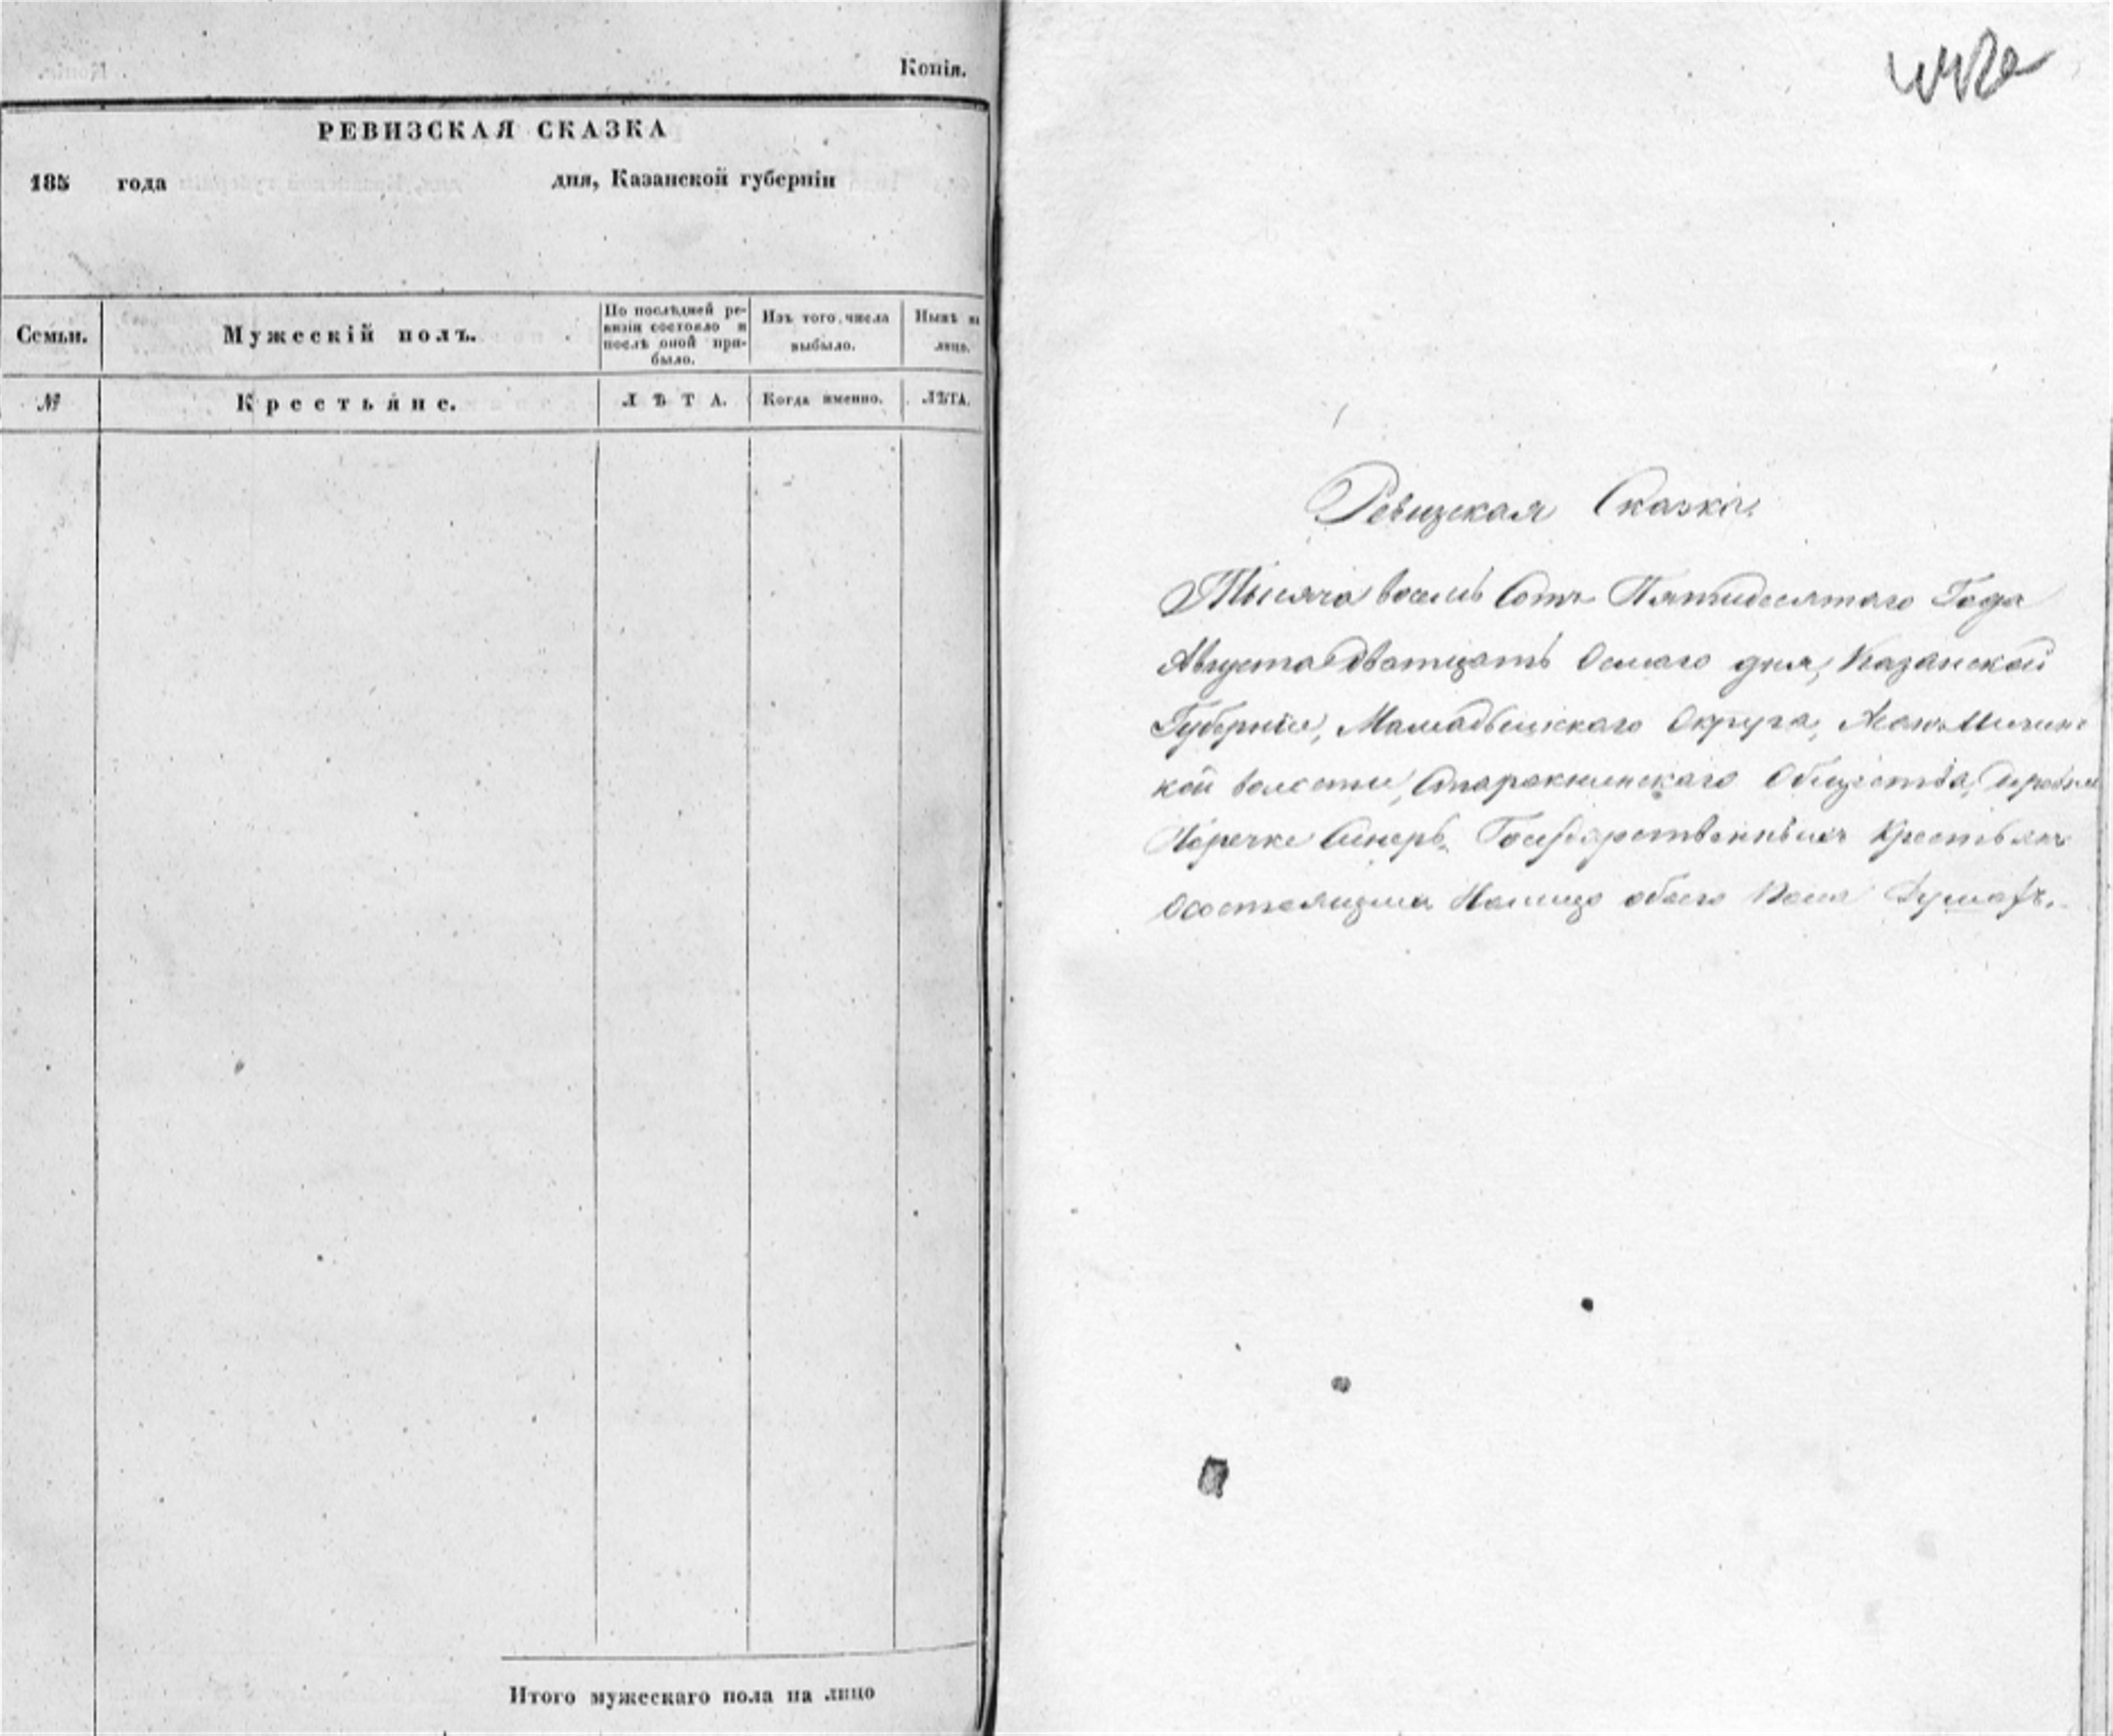 Копія.
РЕВИЗСКАЯ СКАЗКА
185 года дня, Казанской губерніи
Семьи.
Мужескій полъ.
По послѣдней ре-
визіи состояло и
послѣ оной при-
было.
Изъ того числа
выбыло.
Нынѣ на
лицо.
№
Крестьяне.
ЛѢТА.
Когда именно.
ЛѢТА.
Итого мужескаго пола на лицо
Ревизская Сказка
Тысяча восемь Сотъ Пятидесятаго Года
Августа дватцать Осмаго дня, Казанской
Губерніи, Мамадышскаго Округа,
кой волости, Общества, деревни
Поречке Синерь, Государственныхъ Крестьянъ
Осостоящихъ Налицо обоего Пола Душахъ.